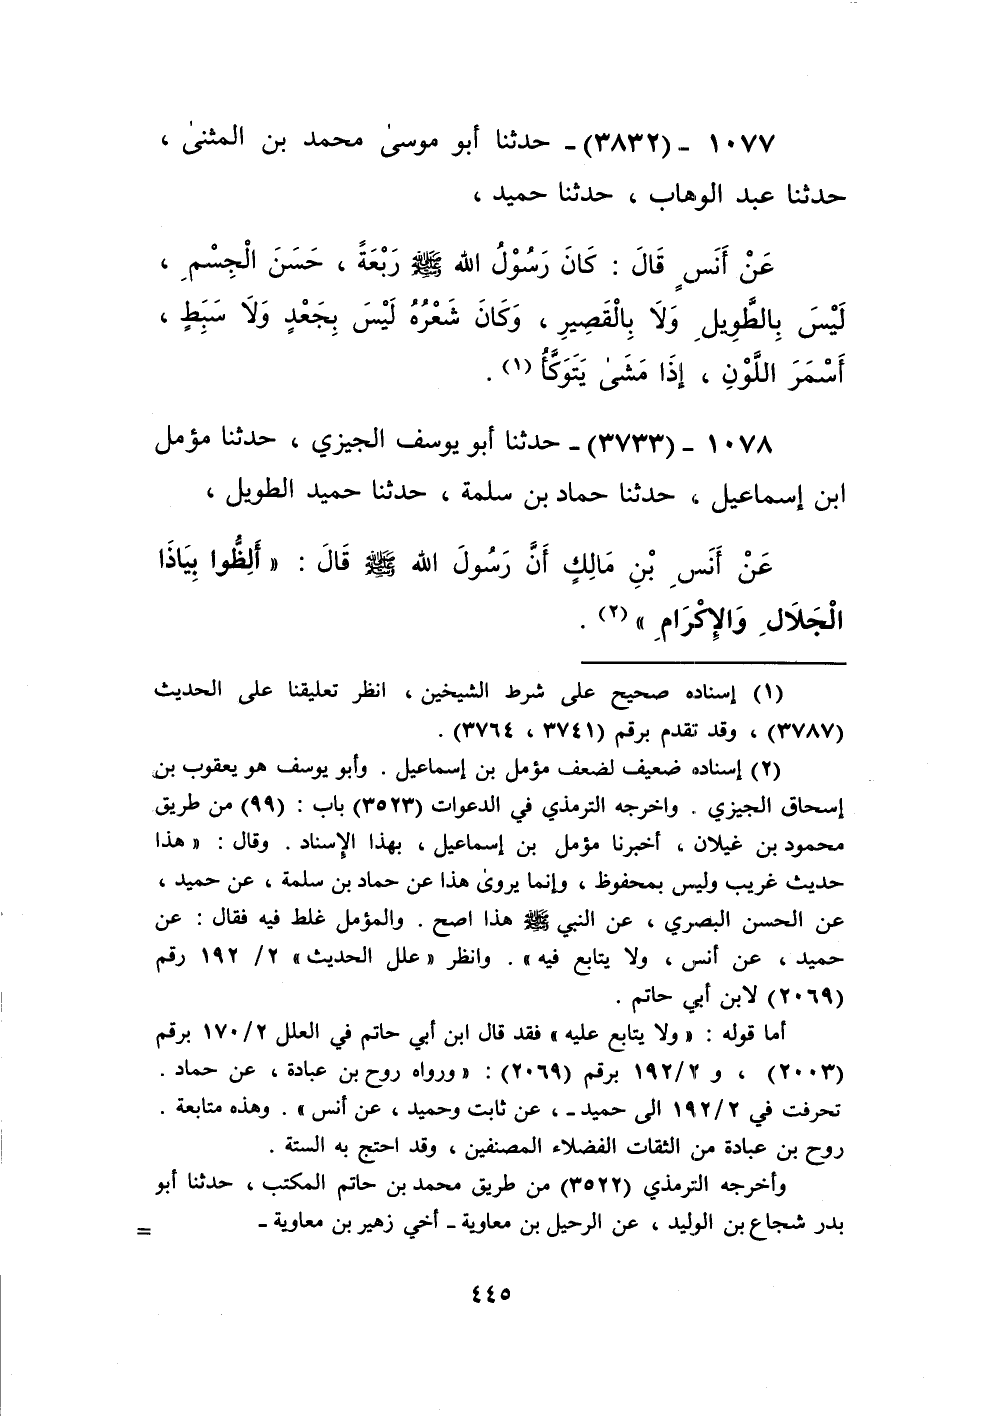 ١٠٧٧ - (٣٨٣٢) - حدثنا أبو موسىٰ محمد بن المثنىٰ ،
حدثنا عبد الوهاب ، حدثنا حميد ،
عَنْ أَنَسٍ قَالَ : كَانَ رَسُوْلُ الله ﷺ رَبْعَةً ، حَسَنَ الْجِسْمِ ،
لَيْسَ بِالطَّوِيلِ وَلَا بِالْقَصِيرِ ، وَكَانَ شَعْرُهُ لَيْسَ بِجَعْدٍ وَلَا سَبَطٍ ،
أَسْمَرَ اللَّوْنِ ، إِذَا مَشَىٰ يَتَوَكَّأُ (١) .
١٠٧٨ - (٣٧٣٣) - حدثنا أبو يوسف الجيزي ، حدثنا مؤمل
ابن إسماعيل ، حدثنا حماد بن سلمة ، حدثنا حميد الطويل ،
عَنْ أَنَسِ بْنِ مَالِكٍ أَنَّ رَسُولَ الله ﷺ قَالَ : « أَلِظُّوا بِيَاذَا
الْجَلَالِ وَالإِكْرَامِ » (٢) .
(١) إسناده صحيح على شرط الشيخين ، انظر تعليقنا على الحديث
(٣٧٨٧) ، وقد تقدم برقم (٣٧٤١ ، ٣٧٦٤) .
(٢) إسناده ضعيف لضعف مؤمل بن إسماعيل . وأبو يوسف هو يعقوب بن
إسحاق الجيزي . واخرجه الترمذي في الدعوات (٣٥٢٣) باب : (٩٩) من طريق
محمود بن غيلان ، أخبرنا مؤمل بن إسماعيل ، بهذا الإسناد . وقال : « هذا
حديث غريب وليس بمحفوظ ، وإنما يروىٰ هذا عن حماد بن سلمة ، عن حميد ،
عن الحسن البصري ، عن النبي ﷺ هذا اصح . والمؤمل غلط فيه فقال : عن
حميد ، عن أنس ، ولا يتابع فيه » . وانظر « علل الحديث » ٢/ ١٩٢ رقم
(٢٠٦٩) لابن أبي حاتم .
أما قوله : « ولا يتابع عليه » فقد قال ابن أبي حاتم في العلل ١٧٠/٢ برقم
(٢٠٠٣) ، و ١٩٢/٢ برقم (٢٠٦٩) : « ورواه روح بن عبادة ، عن حماد .
تحرفت في ١٩٢/٢ الى حميد - ، عن ثابت وحميد ، عن أنس » . وهذه متابعة .
روح بن عبادة من الثقات الفضلاء المصنفين ، وقد احتج به الستة .
وأخرجه الترمذي (٣٥٢٢) من طريق محمد بن حاتم المكتب ، حدثنا أبو
بدر شجاع بن الوليد ، عن الرحيل بن معاوية - أخي زهير بن معاوية -
=
٤٤٥